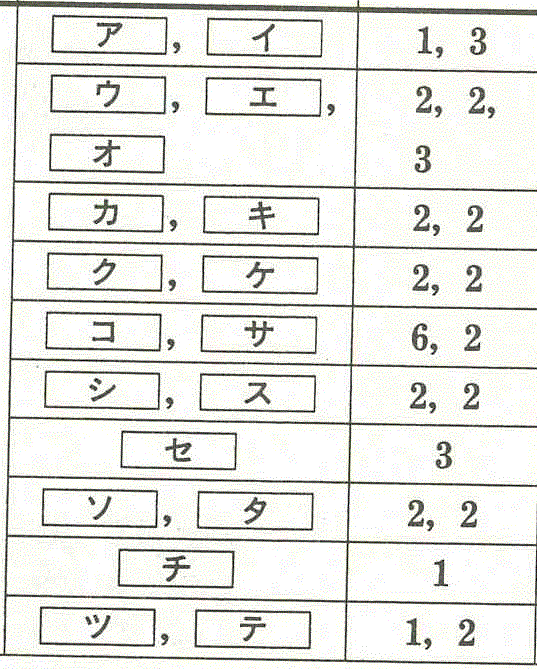 ア, イ 1, 3
ウ, エ, 2, 2,
オ 3
カ, キ 2, 2
ク, ケ 2, 2
コ, サ 6, 2
シ, ス 2, 2
セ 3
ソ, タ 2, 2
チ 1
ツ, テ 1, 2